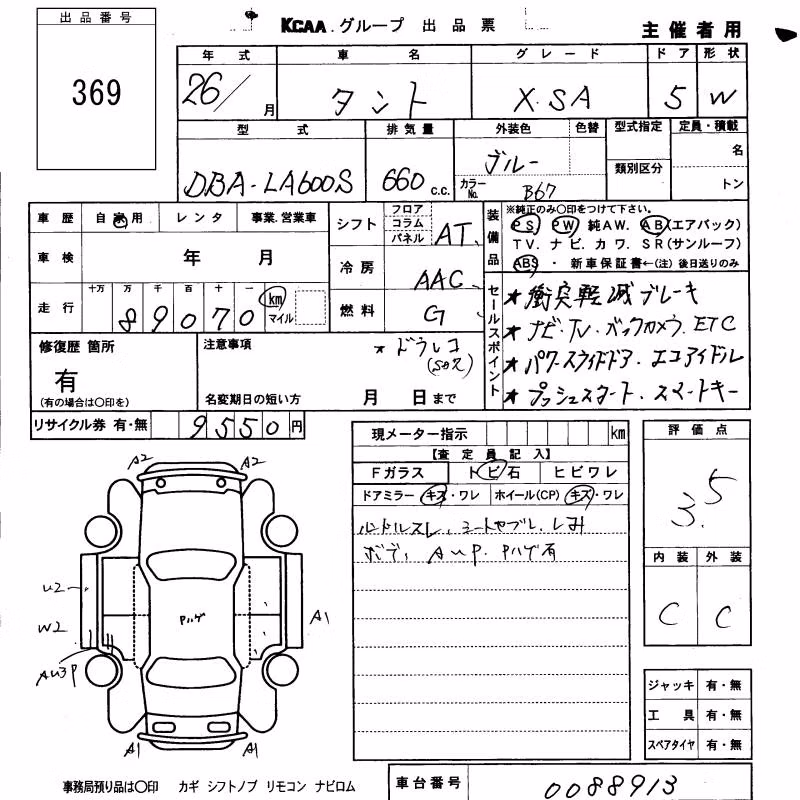 出品番号
369
KCAA.グループ 出品票
主催者用
年式 車名 グレード ドア 形状
26/ 月 タント X.SA 5 W
型式 排気量 外装色 色替 型式指定 定員・積載
DBA-LA600S 660 c.c. ブルー 類別区分 名
カラーNo. B67 トン
車歴 自家用 レンタ 事業.営業車
車検 年 月
走行 十万 万 千 百 十 一 km マイル
89070
シフト フロア コラム パネル AT
冷房 AAC
燃料 G
装備品
※純正のみ○印をつけて下さい。
PS PW 純AW. AB(エアバック)
TV. ナビ. カワ. SR(サンルーフ)
ABS ・ 新車保証書←(注)後日送りのみ
セールスポイント
★衝突軽減ブレーキ
★ナビ.TV.バックカメラ.ETC
★パワースライドドア.エコアイドル
★プッシュスタート.スマートキー
修復歴 箇所
有
(有の場合は○印を)
注意事項
★ドラレコ
名変期日の短い方 月 日まで
リサイクル券 有・無 9550円
現メーター指示 km
【査定員記入】
Fガラス トビ石 ヒビワレ
ドアミラー キズ・ワレ ホイール(CP) キズ・ワレ
ハンドルスレ、シートヤブレ.シミ
ボデ, AUP. Pハゲ有
評価点
3.5
内装 外装
C C
ジャッキ 有・無
工具 有・無
スペアタイヤ 有・無
A2 A2
U2
W2
AU3P
Pハゲ
A1
A1 A1
事務局預り品は○印 カギ シフトノブ リモコン ナビロム
車台番号 0088913